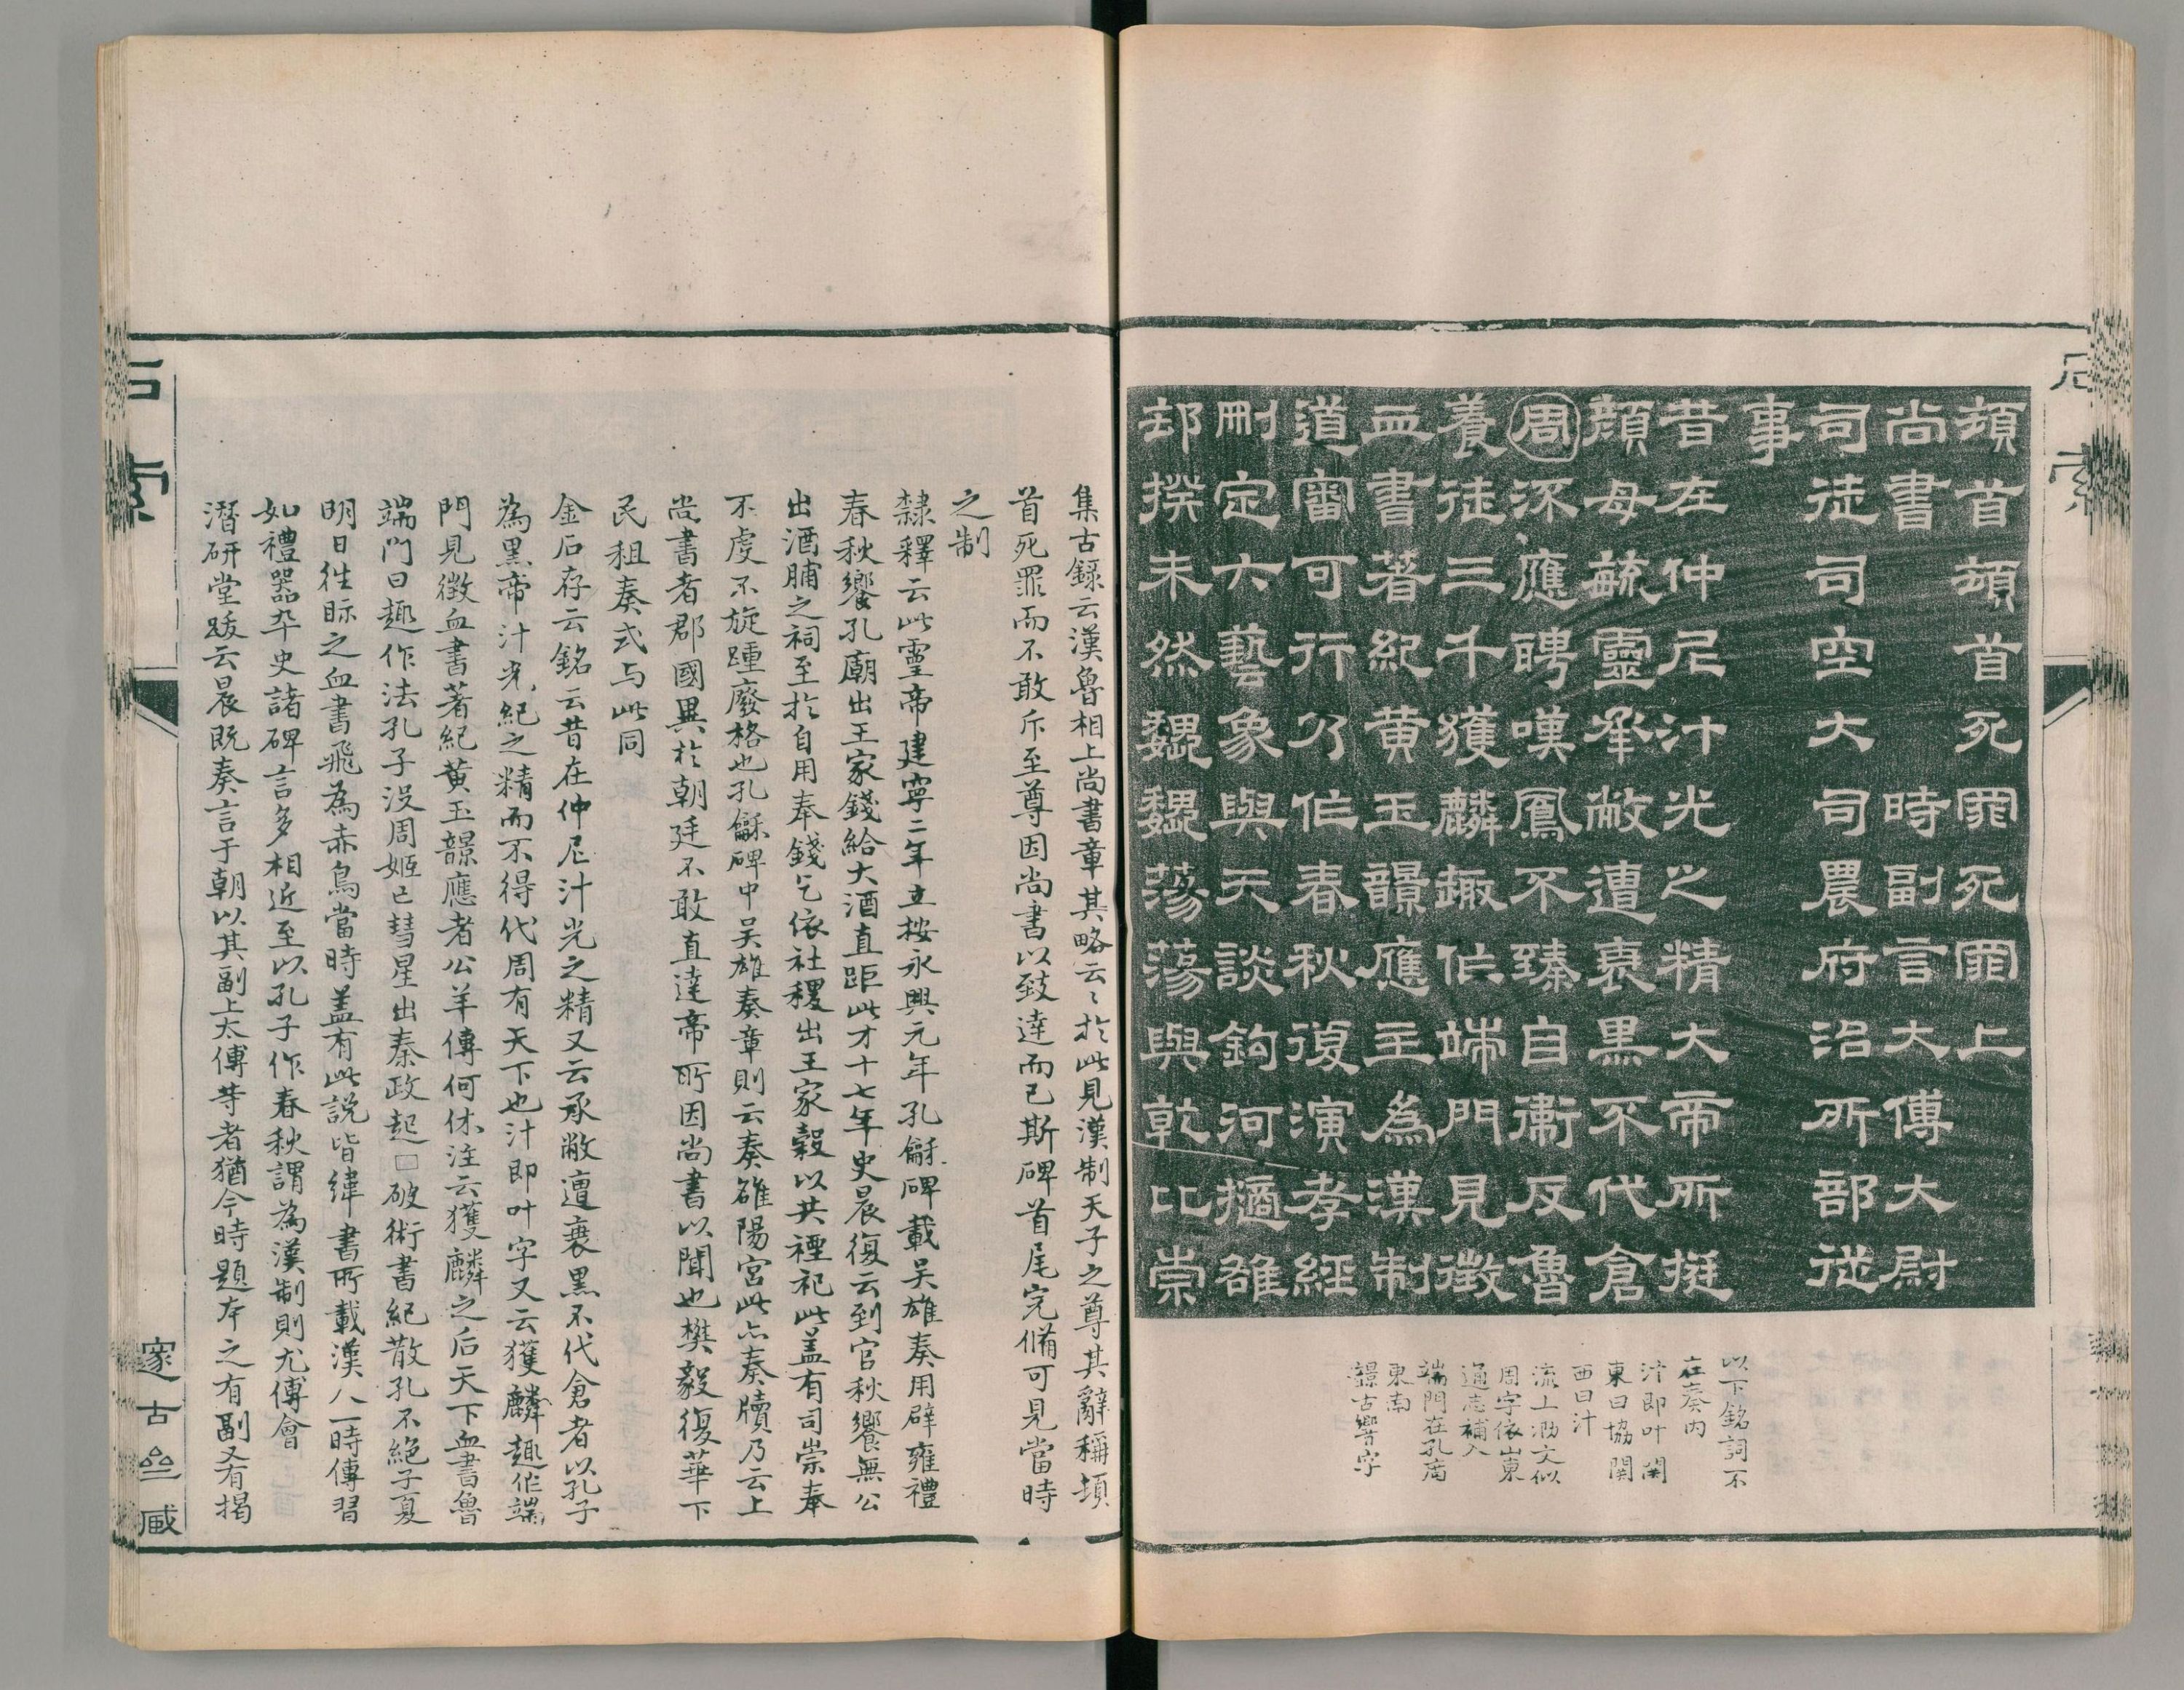 石索
頓首頓首死罪死罪上
尚書 時副言大傅大尉
司徒司空大司農府治所部從
事
昔在仲尼汁光之精大帝所挺
顏母毓靈承敝遭衰黑不代倉
周流應聘嘆鳳不臻自衛反魯
養徒三千獲麟趣作端門見徵
血書著紀黃玉𩐿應主為漢制
道審可行乃作春秋復演孝經
刪定六藝象與天談鉤河擿雒
却揆未然魏魏蕩蕩與乾比崇
以下銘詞不
在奏內
汁即叶闗
東曰協闗
西曰汁
流上泐文似
周字依山東
通志補入
端門在孔庿
東南
𩐿古響字
集古錄云漢魯相上尚書章其略云云於此見漢制天子之尊其辭稱頓
首死罪而不敢斥至尊因尚書以致達而已斯碑首尾完備可見當時
之制
隸釋云此靈帝建寧二年立按永興元年孔龢碑載吳雄奏用辟雍禮
春秋饗孔廟出王家錢給大酒直距此才十七年史晨復云到官秋饗無公
出酒脯之祠至於自用奉錢乞依社稷出王家穀以共禋祀此盖有司崇奉
不虔不旋踵廢格也孔龢碑中吳雄奏章則云奏雒陽宮此亦奏牘乃云上
尚書者郡國異於朝廷不敢直達帝所因尚書以聞也樊毅復華下
民租奏式与此同
金石存云銘云昔在仲尼汁光之精又云承敝遭衰黑不代倉者以孔子
為黑帝汁光紀之精而不得代周有天下也汁即叶字又云獲麟趣作端
門見徵血書著紀黃玉𩐿應者公羊傳何休注云獲麟之后天下血書魯
端門曰趣作法孔子沒周姬亡彗星出秦政起□破術書紀散孔不絕子夏
明日往眎之血書飛為赤鳥當時盖有此說皆緯書所載漢人一時傳習
如禮器卒史諸碑言多相近至以孔子作春秋謂為漢制則尤傅會
潛研堂跋云晨既奏言于朝以其副上太傅等者猶今時題本之有副又有揭
石索
邃古亝臧